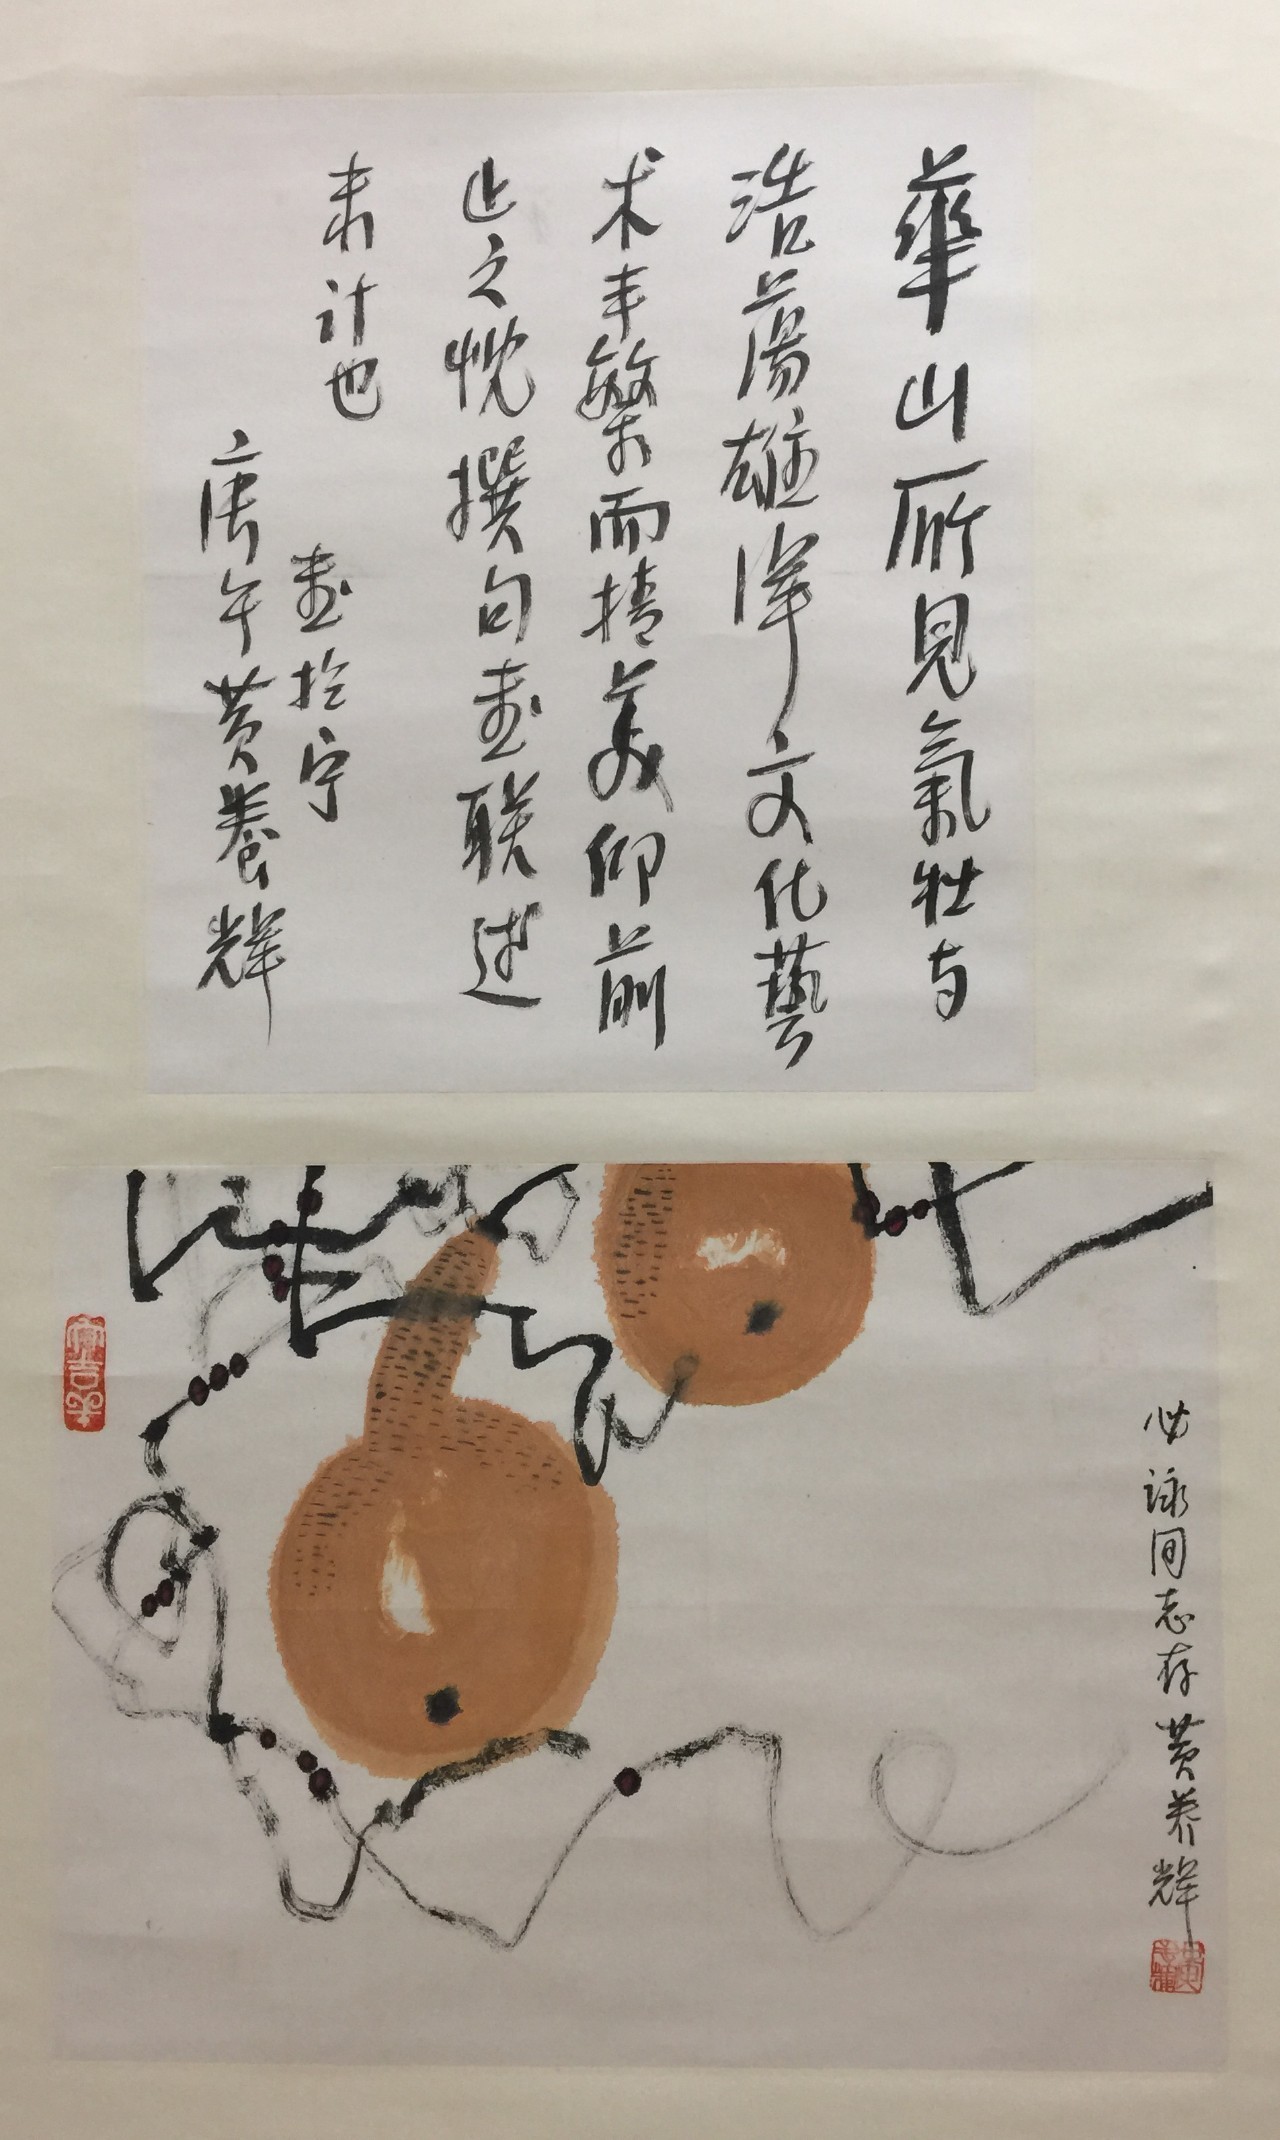 華山所見氣壯与
浩蕩雄渾文化藝
术丰繁而精美仰前
止之忱撰句書联述
素计也
書於宁
庚午黄養辉
必詠同志存 黄养辉